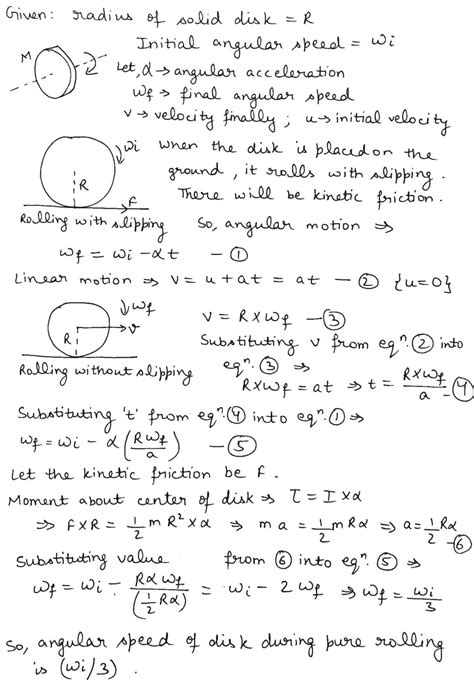 Given: radius of solid disk = R
Initial angular speed = ωi
M
Let, α → angular acceleration
ωf → final angular speed
v → velocity finally ; u → initial velocity
ωi
When the disk is placed on the
ground, it rolls with slipping.
R
There will be kinetic friction.
F
Rolling with slipping
So, angular motion ⇒
ωf = ωi - αt — ①
Linear motion ⇒ v = u + at = at — ② {u=0}
ωf
v
R
v = R×ωf — ③
Substituting v from eqn. ② into
eqn. ③ ⇒
Rolling without slipping
R×ωf = at ⇒ t = R×ωf/a — ④
Substituting 't' from eqn. ④ into eqn. ① ⇒
ωf = ωi - α(Rωf/a) — ⑤
Let the kinetic friction be F.
Moment about center of disk ⇒ τ = I×α
⇒ F×R = 1/2 mR²×α ⇒ ma = 1/2 mRα ⇒ a = 1/2 Rα — ⑥
Substituting value from ⑥ into eqn. ⑤ ⇒
ωf = ωi - Rαωf/(1/2 Rα) = ωi - 2ωf ⇒ ωf = ωi/3
So, angular speed of disk during pure rolling
is (ωi/3) .